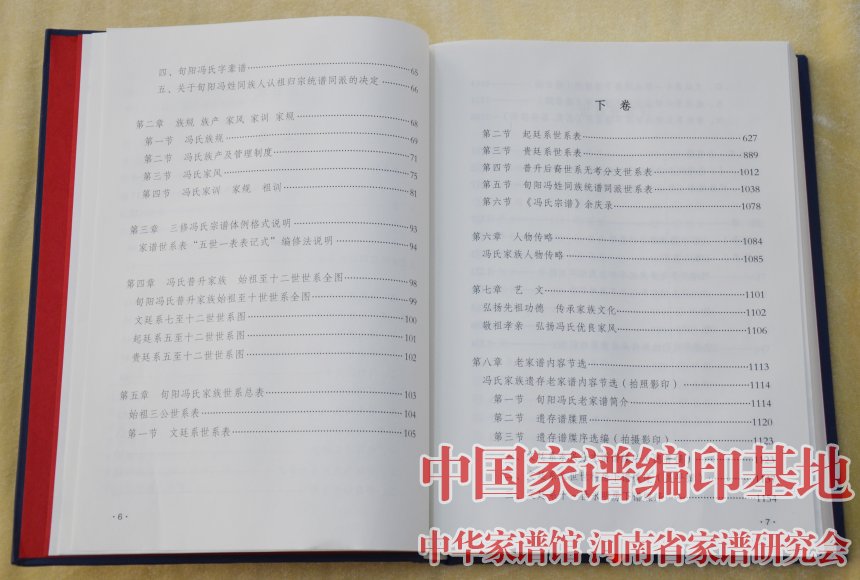 四、旬阳冯氏字辈谱……65
五、关于旬阳冯姓同族人认祖归宗统谱同派的决定……66
第二章 族规 族产 家风 家训 家规……68
第一节 冯氏族规……69
第二节 冯氏族产及管理制度……71
第三节 冯氏家风……75
第四节 冯氏家训 家规 祖训……81
第三章 三修冯氏宗谱体例格式说明……93
家谱世系表“五世一表表记式”编修法说明……94
第四章 冯氏普升家族 始祖至十二世世系全图……98
旬阳冯氏普升家族始祖至十世世系全图……99
文廷系七至十二世世系图……100
起廷系五至十二世世系图……101
贵廷系五至十二世世系图……102
第五章 旬阳冯氏家族世系总表……103
始祖三公世系表……104
第一节 文廷系世系表……105
·6·
下 卷
第二节 起廷系世系表……627
第三节 贵廷系世系表……889
第四节 普升后裔世系无考分支世系表……1012
第五节 旬阳冯姓同族统谱同派世系表……1038
第六节 《冯氏宗谱》余庆录……1078
第六章 人物传略……1084
冯氏家族人物传略……1085
第七章 艺 文……1101
弘扬先祖功德 传承家族文化……1102
敬祖孝亲 弘扬冯氏优良家风……1106
第八章 老家谱内容节选……1113
冯氏家族遗存老家谱内容节选（拍照影印）……1114
第一节 旬阳冯氏老家谱简介……1114
第二节 遗存谱牒照……1120
第三节 遗存谱牒序选编（拍摄影印）……1123
·7·
中国家谱编印基地
中华家谱馆 河南省家谱研究会